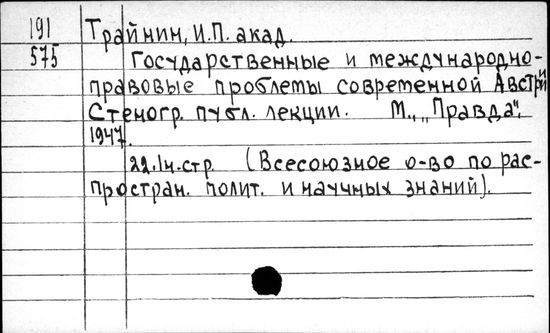 191 Трайнин, И.П. акад.
575 Государственные и международно-
правовые проблемы современной Австрии
Стеногр. публ. лекции. М., „Правда",
1947.
22.Iч.стр. (Всесоюзное о-во по рас-
простран. полит. и научных знаний).